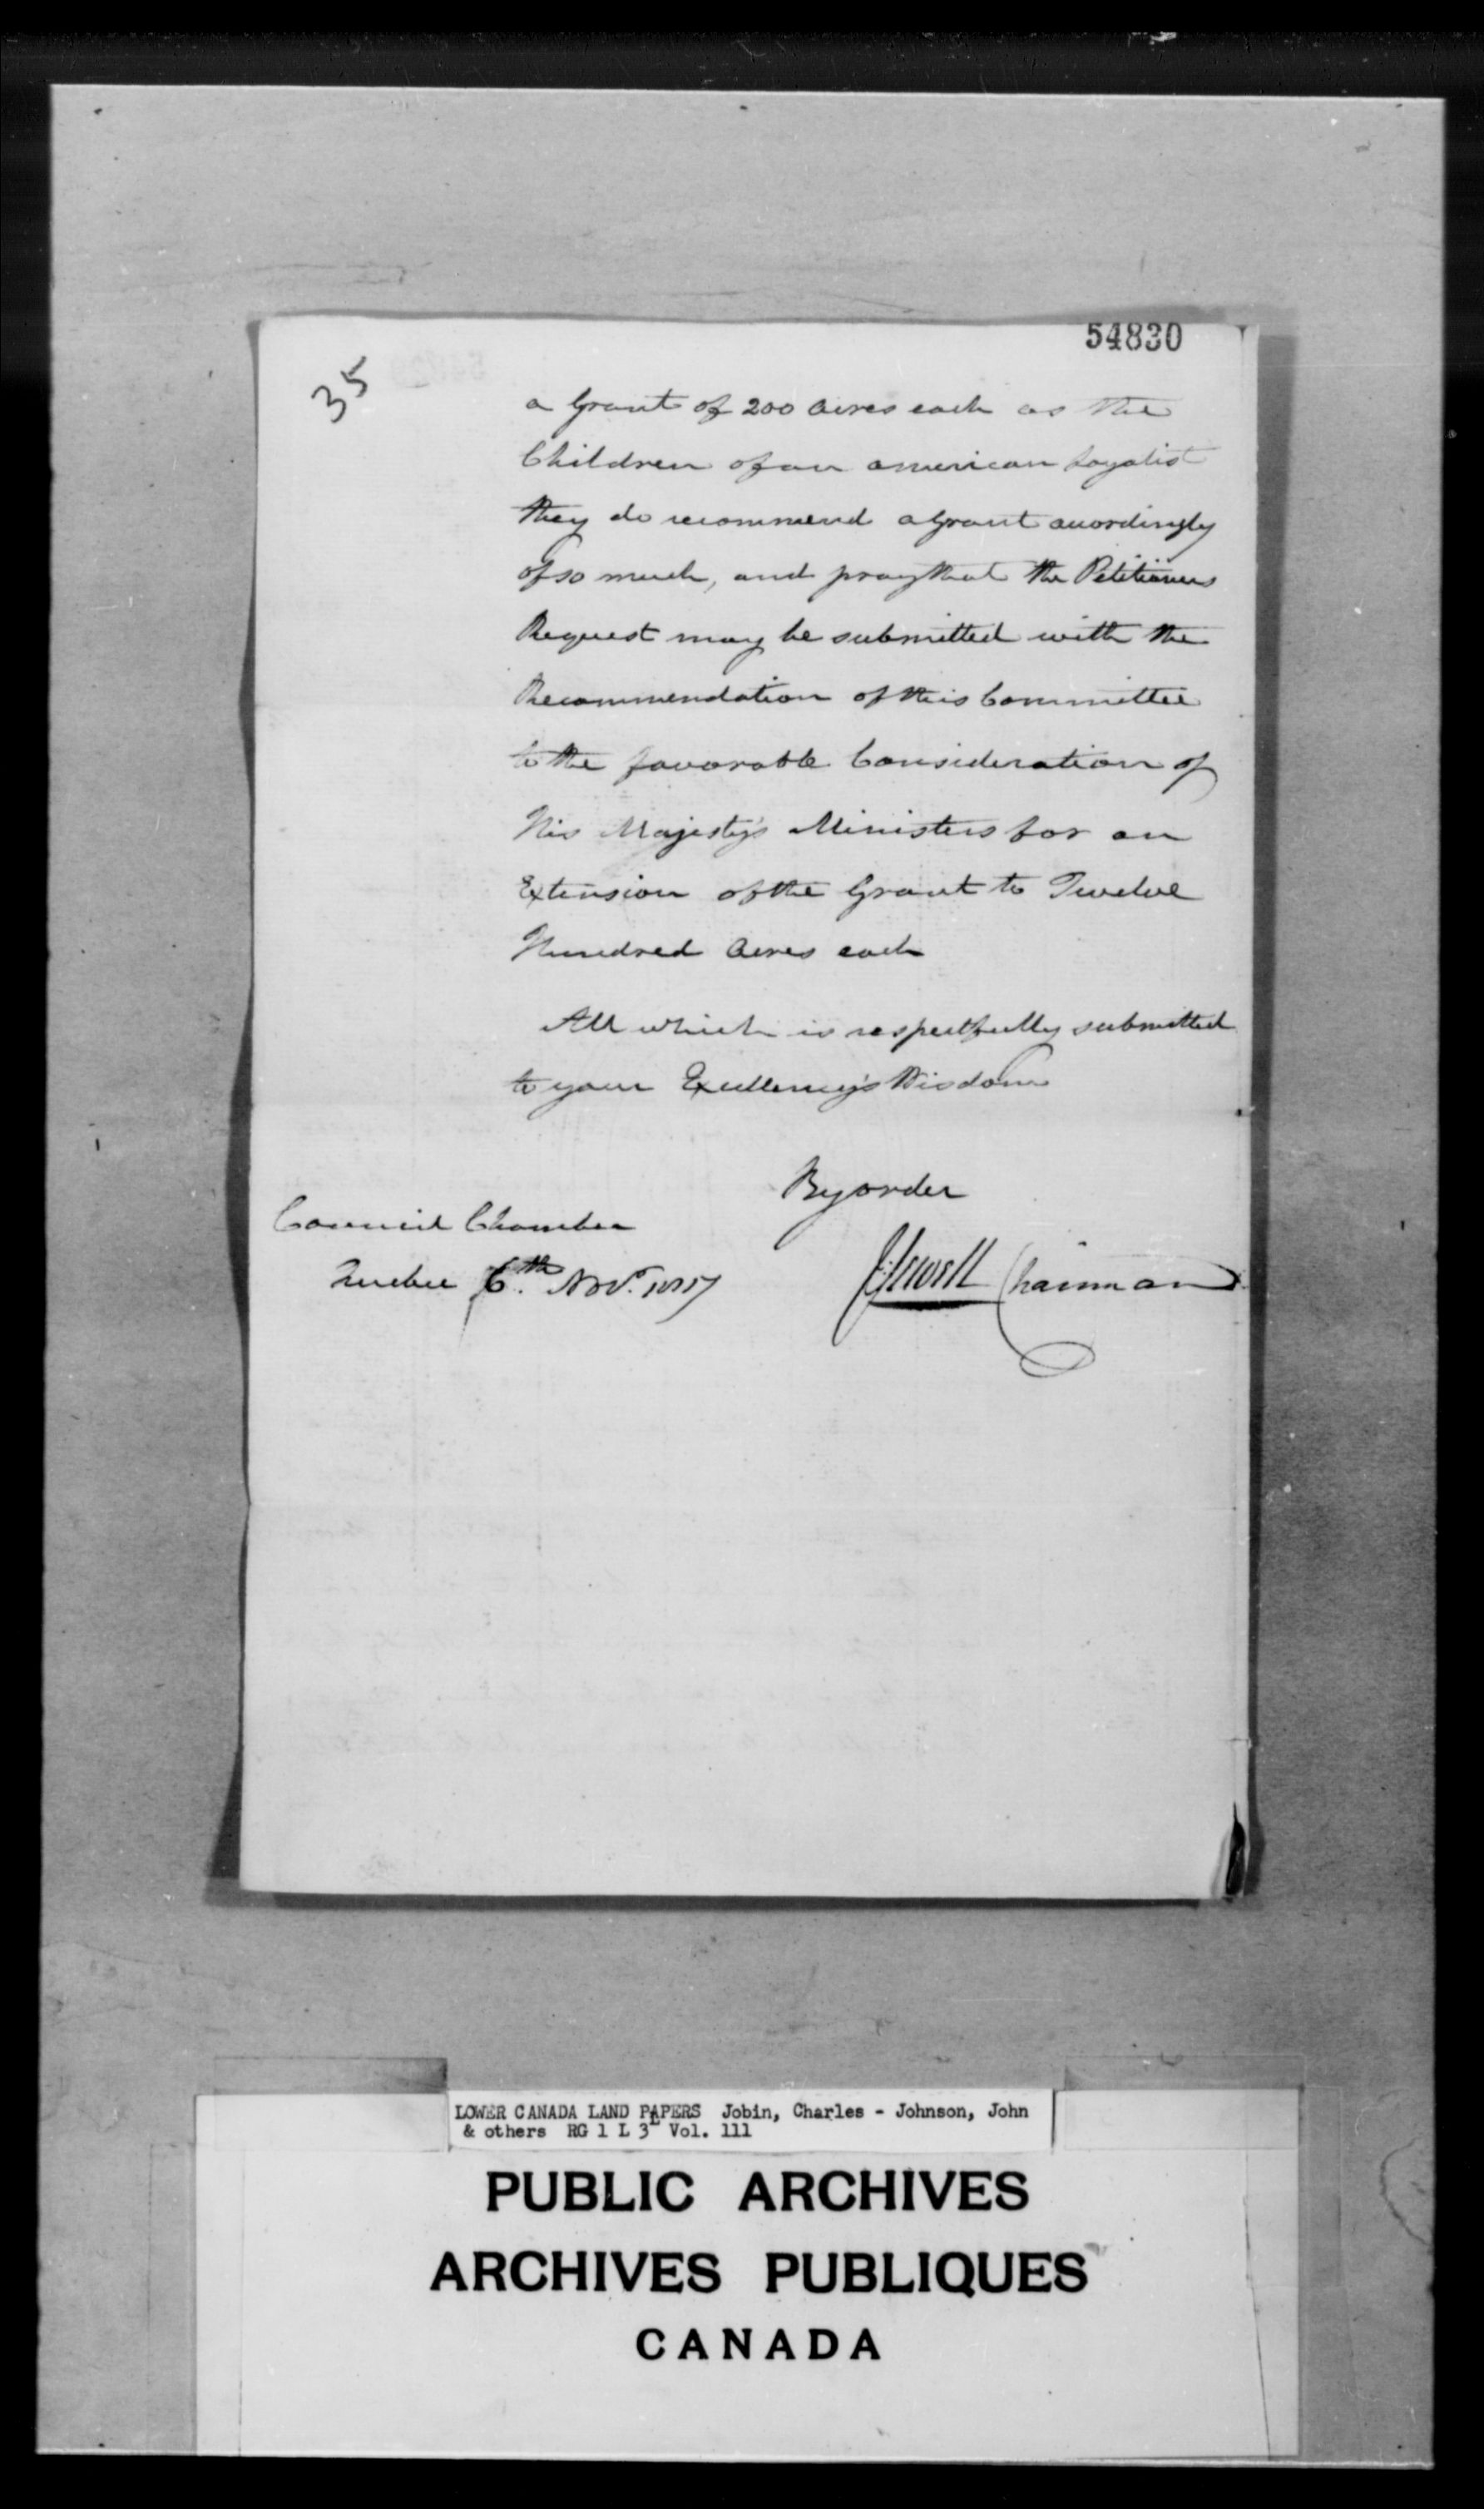 54830
35
a Grant of 200 Acres each as the
Children of an american Loyalist
they do recommend a Grant accordingly
of so much, and pray that the Petitioners
Request may be submitted with the
Recommendation of this Committee
to the favorable Consideration of
His Majesty's Ministers for an
Extension of the Grant to Twelve
Hundred Acres each
All which is respectfully submitted
to your Excellency's Wisdom
By order
Council Chamber
Quebec 6th Novr. 1817
J Sewell Chairman
LOWER CANADA LAND PAPERS Jobin, Charles - Johnson, John
& others RG 1 L 3L Vol. 111
PUBLIC ARCHIVES
ARCHIVES PUBLIQUES
CANADA